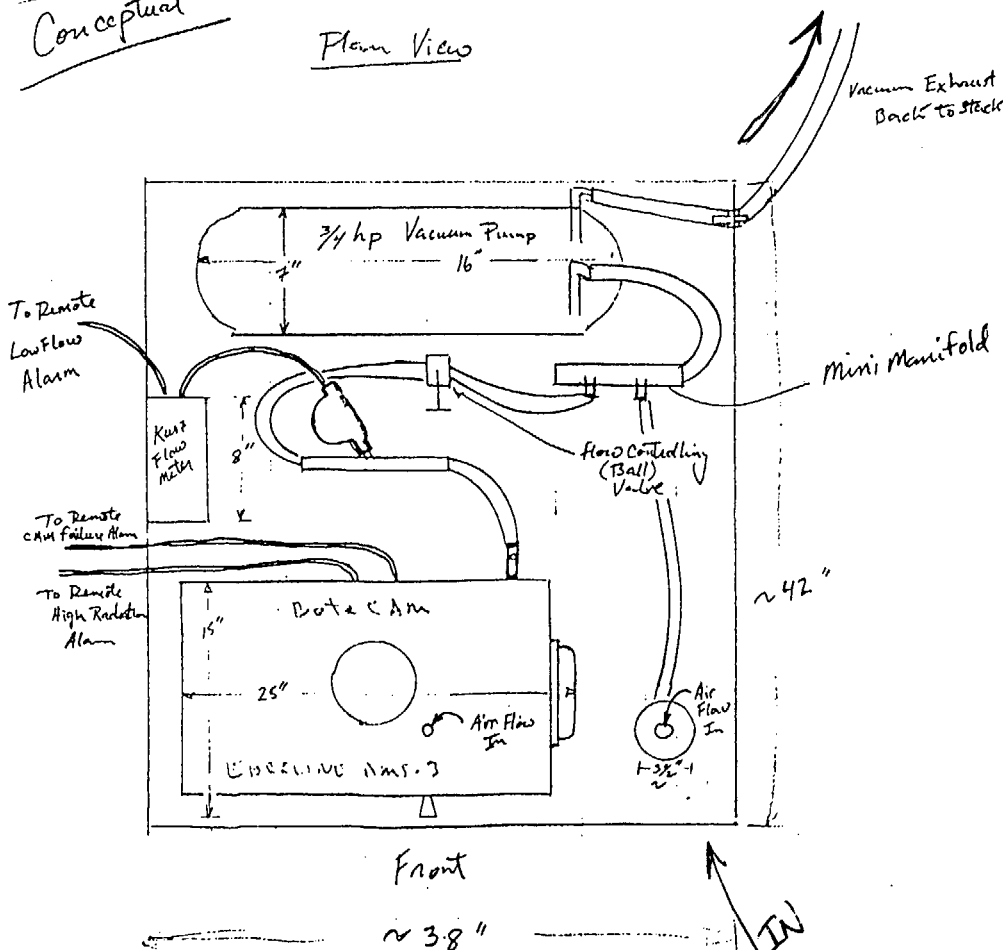 Conceptual
Plan View
Vacuum Exhaust
Back to Stack
3/4 hp Vacuum Pump
7"
16"
To Remote
Low Flow
Alarm
Mini Manifold
Kurz
Flow
Meter
8"
flow Controlling
(Ball)
Valve
To Remote
CAM Failure Alarm
To Remote
High Radiation
Alarm
~42"
Beta CAM
15"
25"
Air Flow
In
Air
Flow
In
3½"
~
EBERLINE AMS-3
Front
~38"
IN